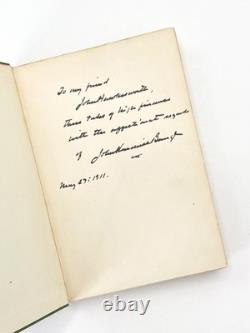 To my friend
John Hawkesworth,
these tales of high finance
with the affectionate regards
of John Kendrick Bangs
May 27: 1911.
ebay